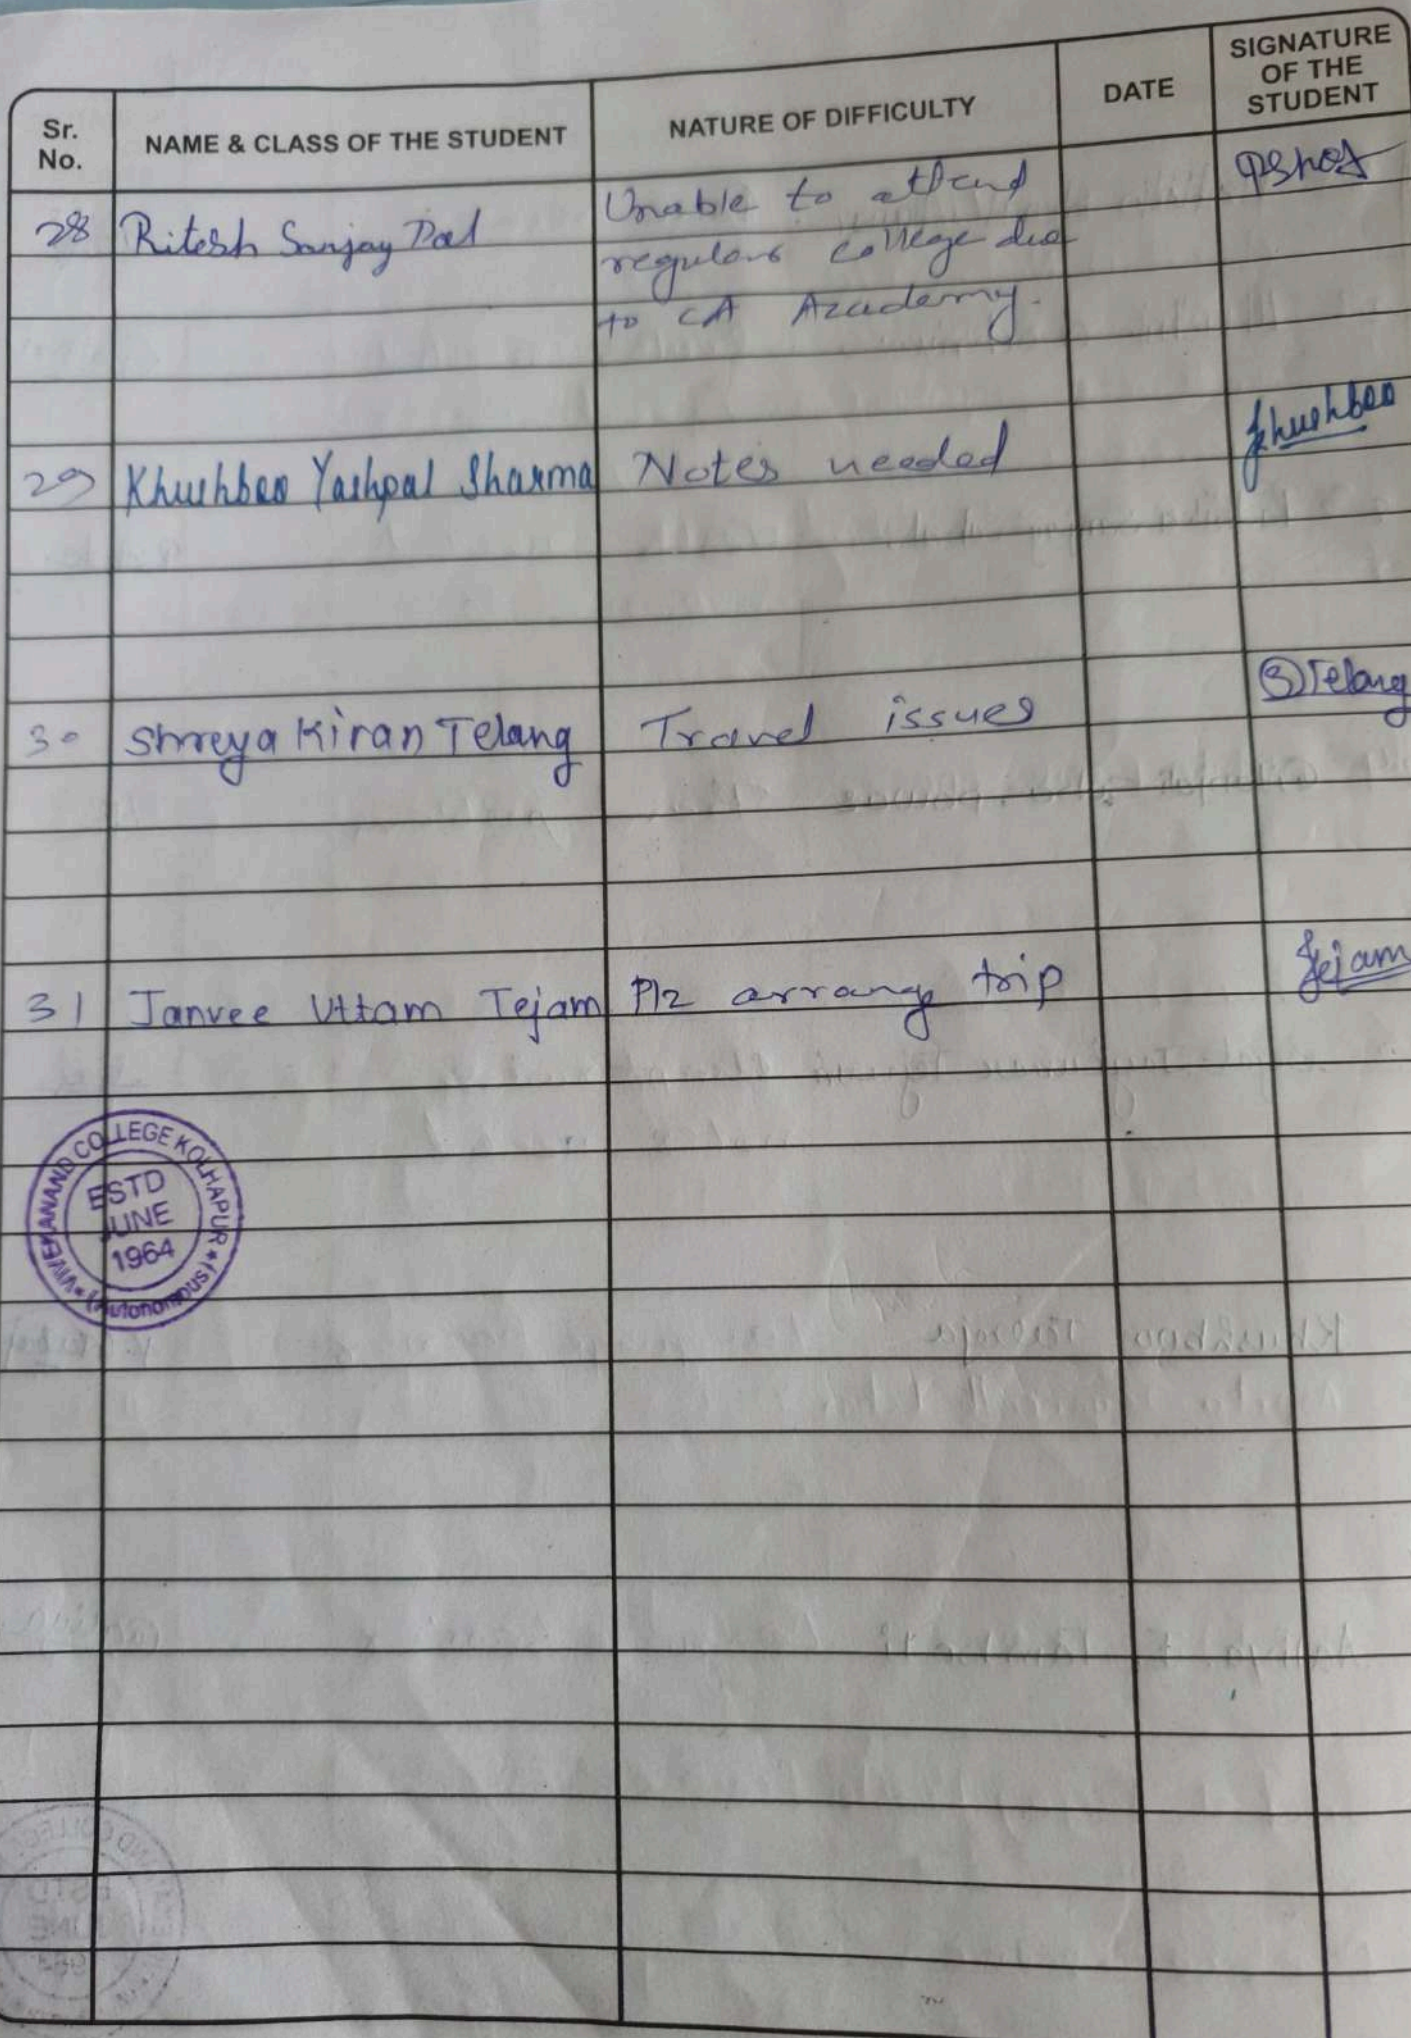 Sr. No. NAME & CLASS OF THE STUDENT NATURE OF DIFFICULTY DATE SIGNATURE OF THE STUDENT
28 Ritesh Sanjay Unable to attend
regular college due
to CA Academy.
29 Khushboo Yashpal Sharma Notes needed Khushboo
30 Shreya Kiran Telang Travel issues STelang
31 Janvee Uttam Tejam Plz arrange trip Tejam
VIVEKANAND COLLEGE KOLHAPUR * (Autonomous) *
ESTD
JUNE
1964